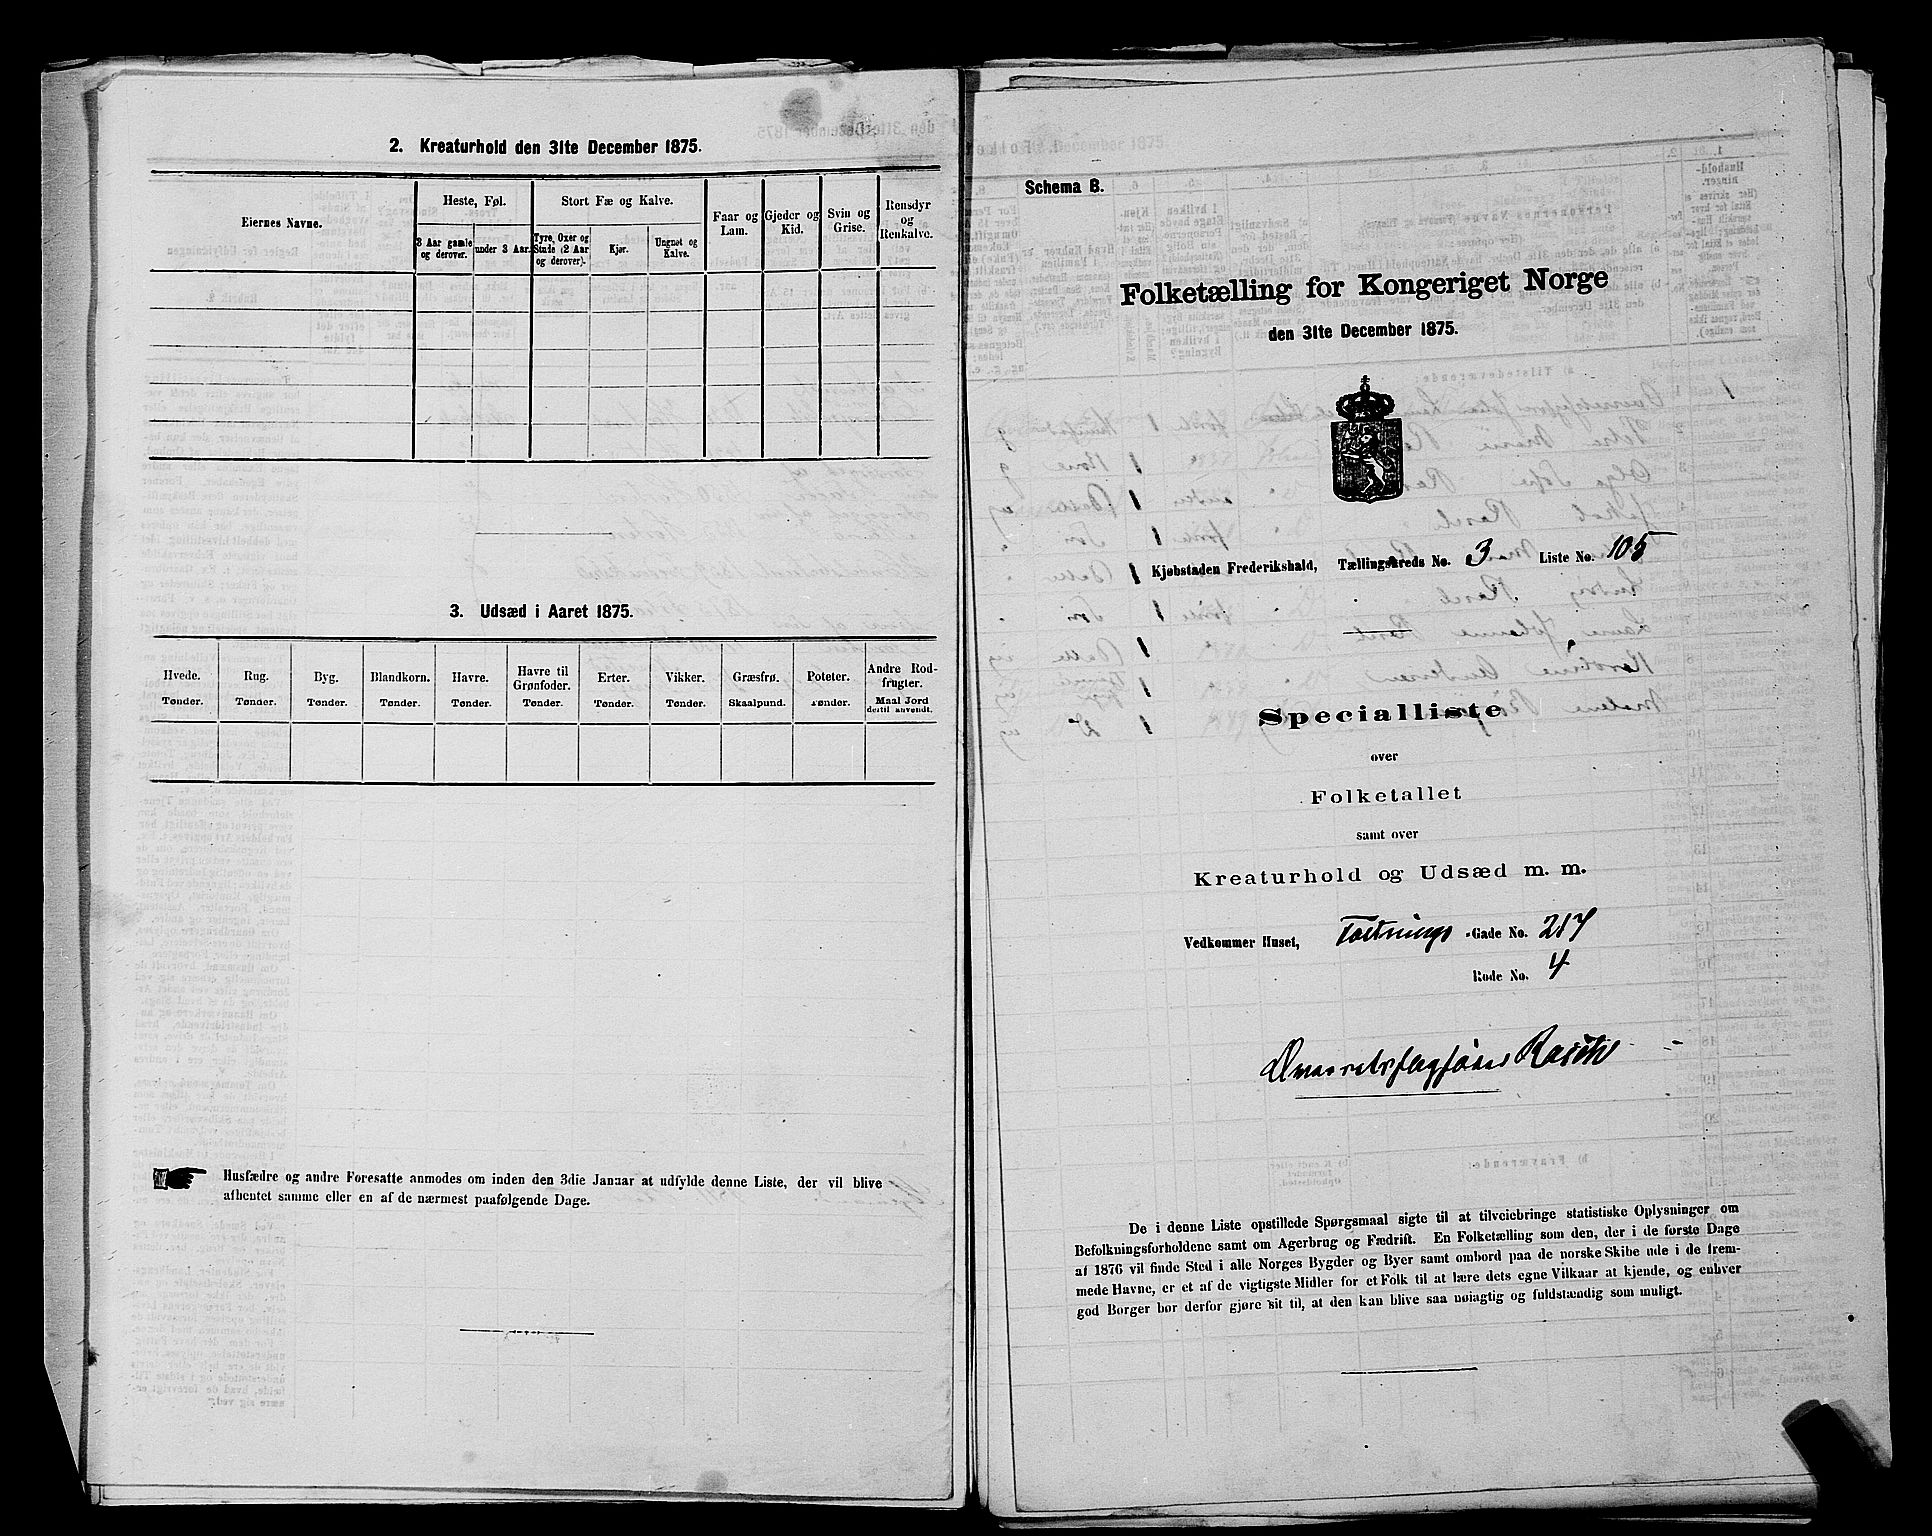 2. Kreaturhold den 31te December 1875.
Eiernes Navne.
Heste, Føl.
3 Aar gamle og derover.
under 3 Aar.
Stort Fæ og Kalve.
Tyre, Oxer og Stude (2 Aar og derover).
Kjør.
Ungnøt og Kalve.
Faar og Lam.
Gjeder og Kid.
Svin og Grise.
Rensdyr og Renkalve.
3. Udsæd i Aaret 1875.
Hvede. Rug. Byg. Blandkorn. Havre. Havre til Grønfoder. Erter. Vikker. Græsfrø. Poteter. Andre Rodfrugter.
Tønder. Tønder. Tønder. Tønder. Tønder. Tønder. Tønder. Tønder. Skaalpund. Tønder. Maal Jord dertil anvendt.
Husfædre og andre Foresatte anmodes om inden den 3die Januar at udfylde denne Liste, der vil blive
afhentet samme eller en af de nærmest paafølgende Dage.
Schema B.
Folketælling for Kongeriget Norge
den 31te December 1875.
Kjøbstaden Frederikshald, Tællingskreds No. 3 Liste No. 105
Specialliste
over
Folketallet
samt over
Kreaturhold og Udsæd m. m.
Vedkommer Huset, Fæstnings-Gade No. 217
Rode No. 4
Overretssagfører Rasch
De i denne Liste opstillede Spørgsmaal sigte til at tilveiebringe statistiske Oplysninger om
Befolkningsforholdene samt om Agerbrug og Fædrift. En Folketælling som den, der i de første Dage
af 1876 vil finde Sted i alle Norges Bygder og Byer samt ombord paa de norske Skibe ude i de frem-
mede Havne, er et af de vigtigste Midler for et Folk til at lære dets egne Vilkaar at kjende, og enhver
god Borger bør derfor gjøre sit til, at den kan blive saa nøiagtig og fuldstændig som muligt.